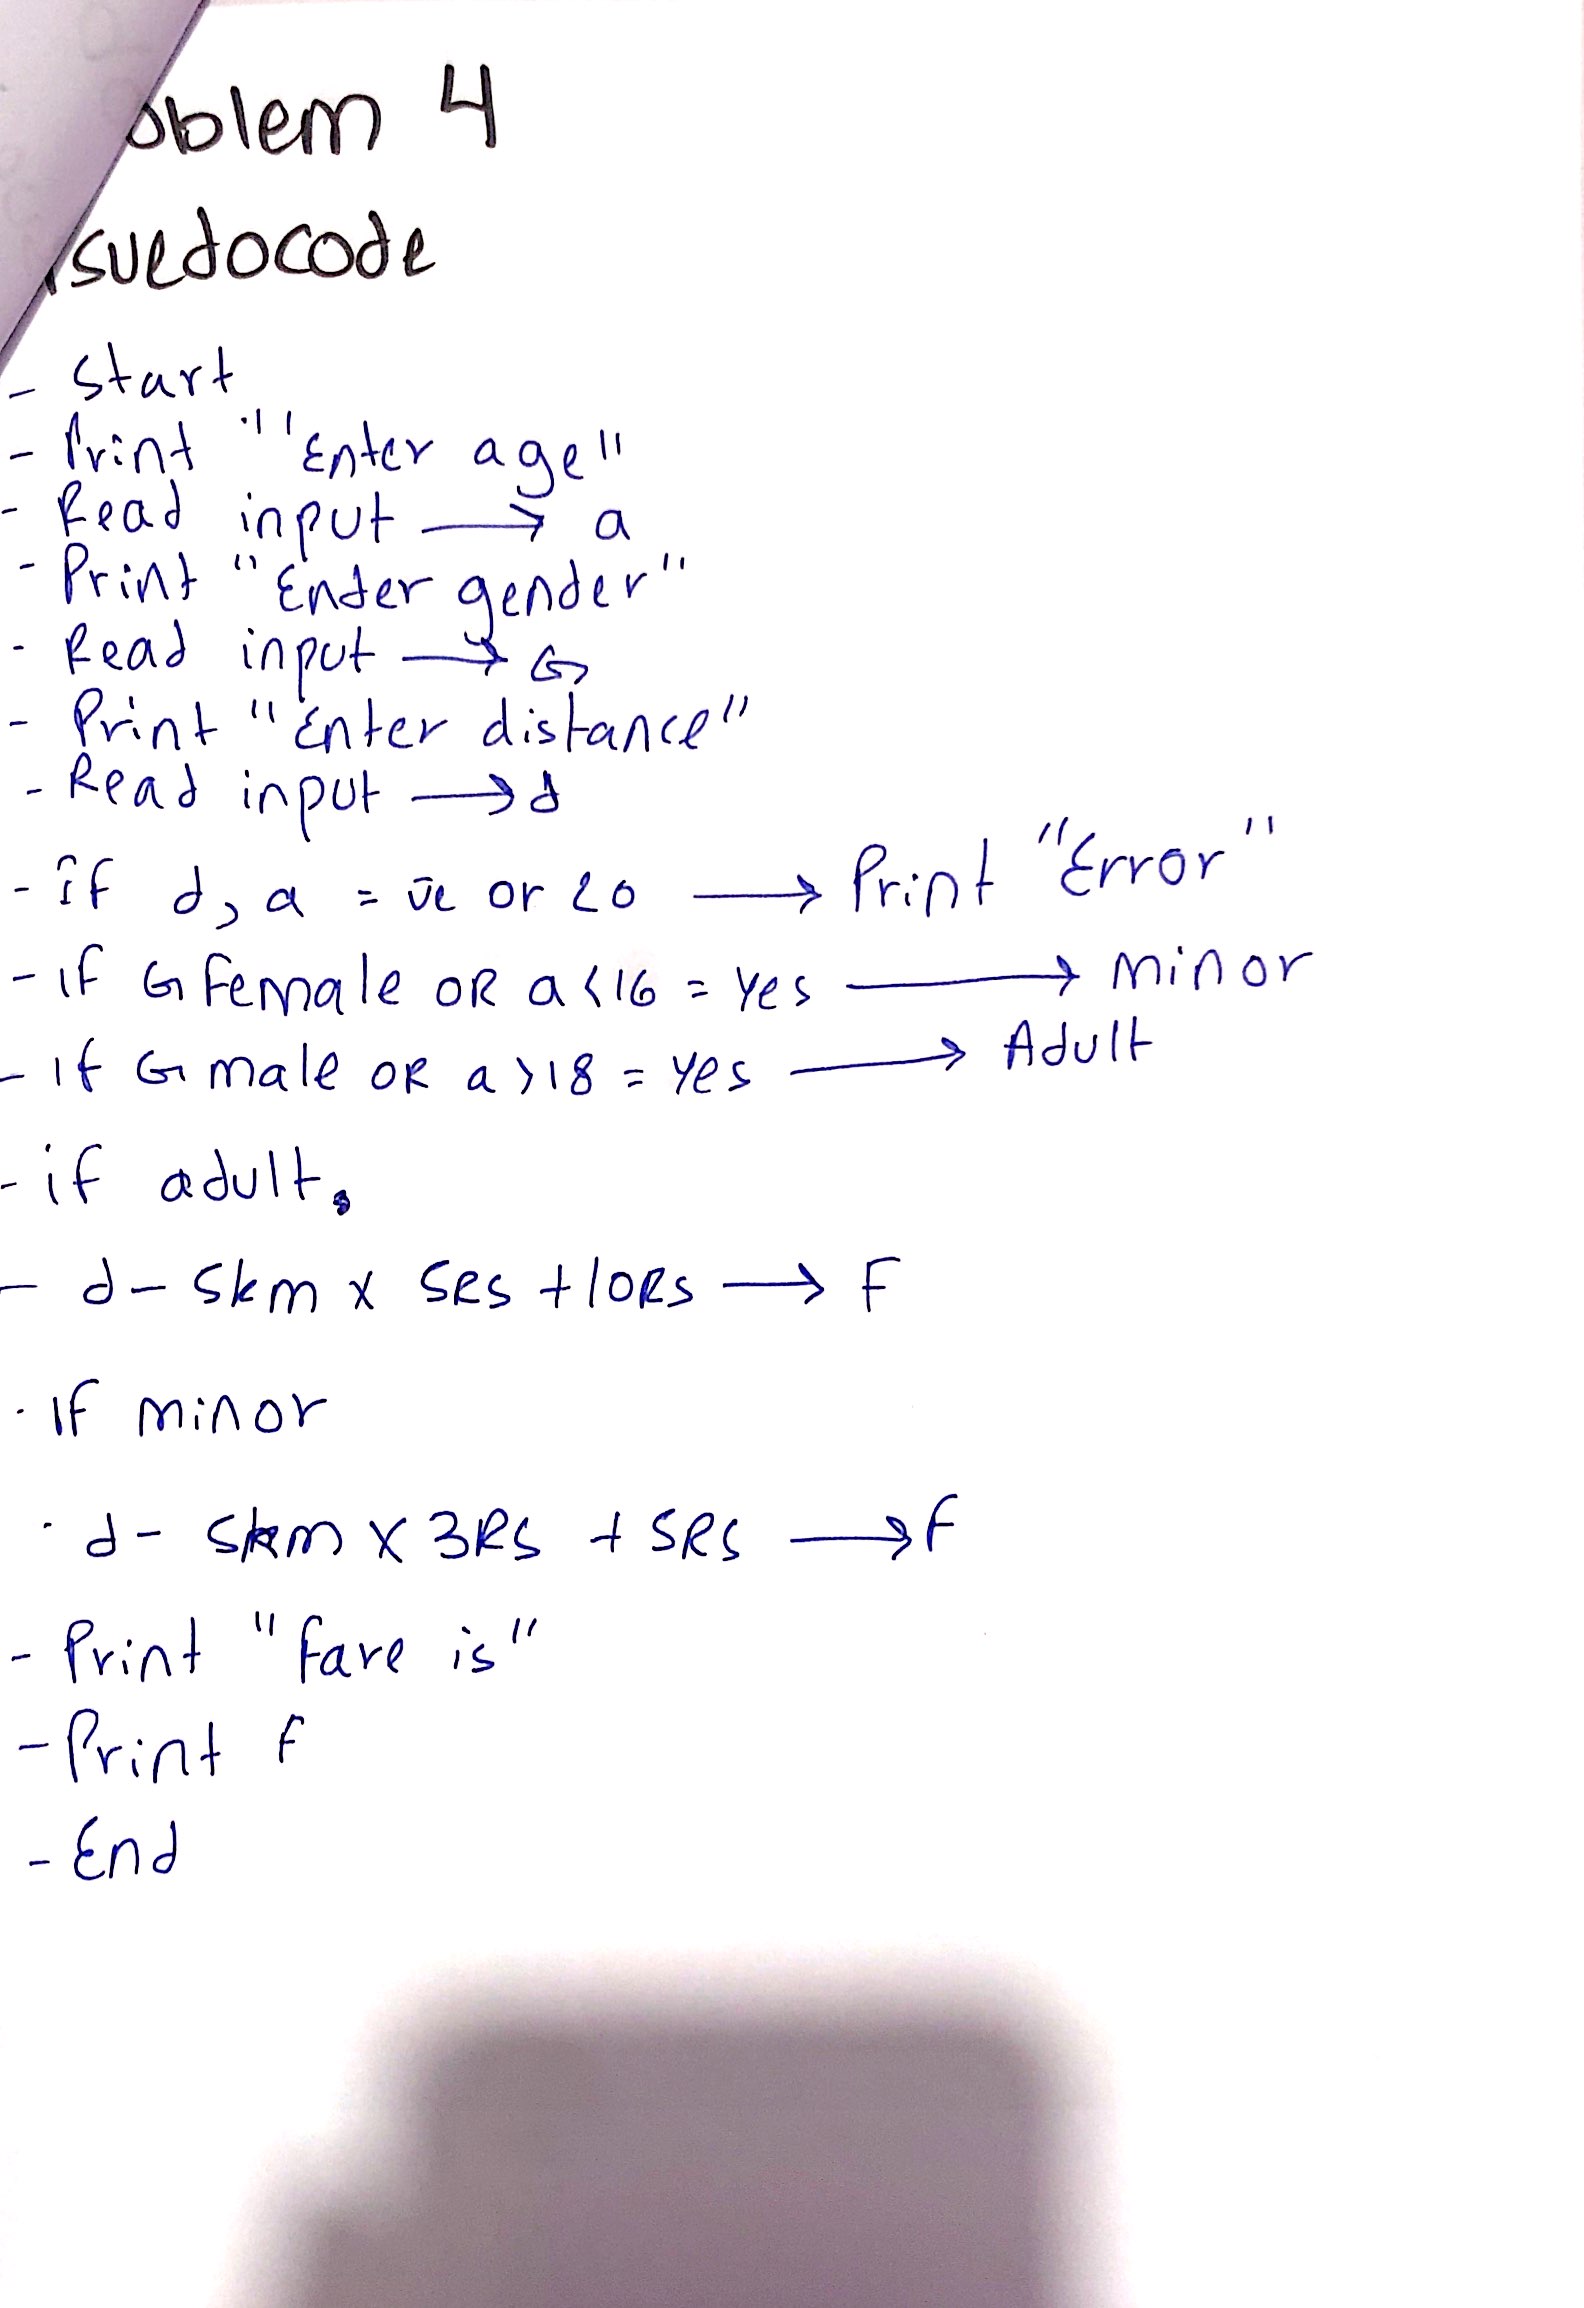 oblem 4
suedocode
- Start
- Print "Enter age"
- Read input → a
- Print "Enter gender"
- Read input → G
- Print "Enter distance"
- Read input → d
- if d, a = -ve or <0 → Print "Error"
- if G female OR a<16 = Yes → minor
- If G male OR a>18 = Yes → Adult
- if adult,
- d - 5km x 5Rs + 10Rs → F
- If minor
- d - 5km x 3Rs + 5Rs → F
- Print "fare is"
- Print f
- End